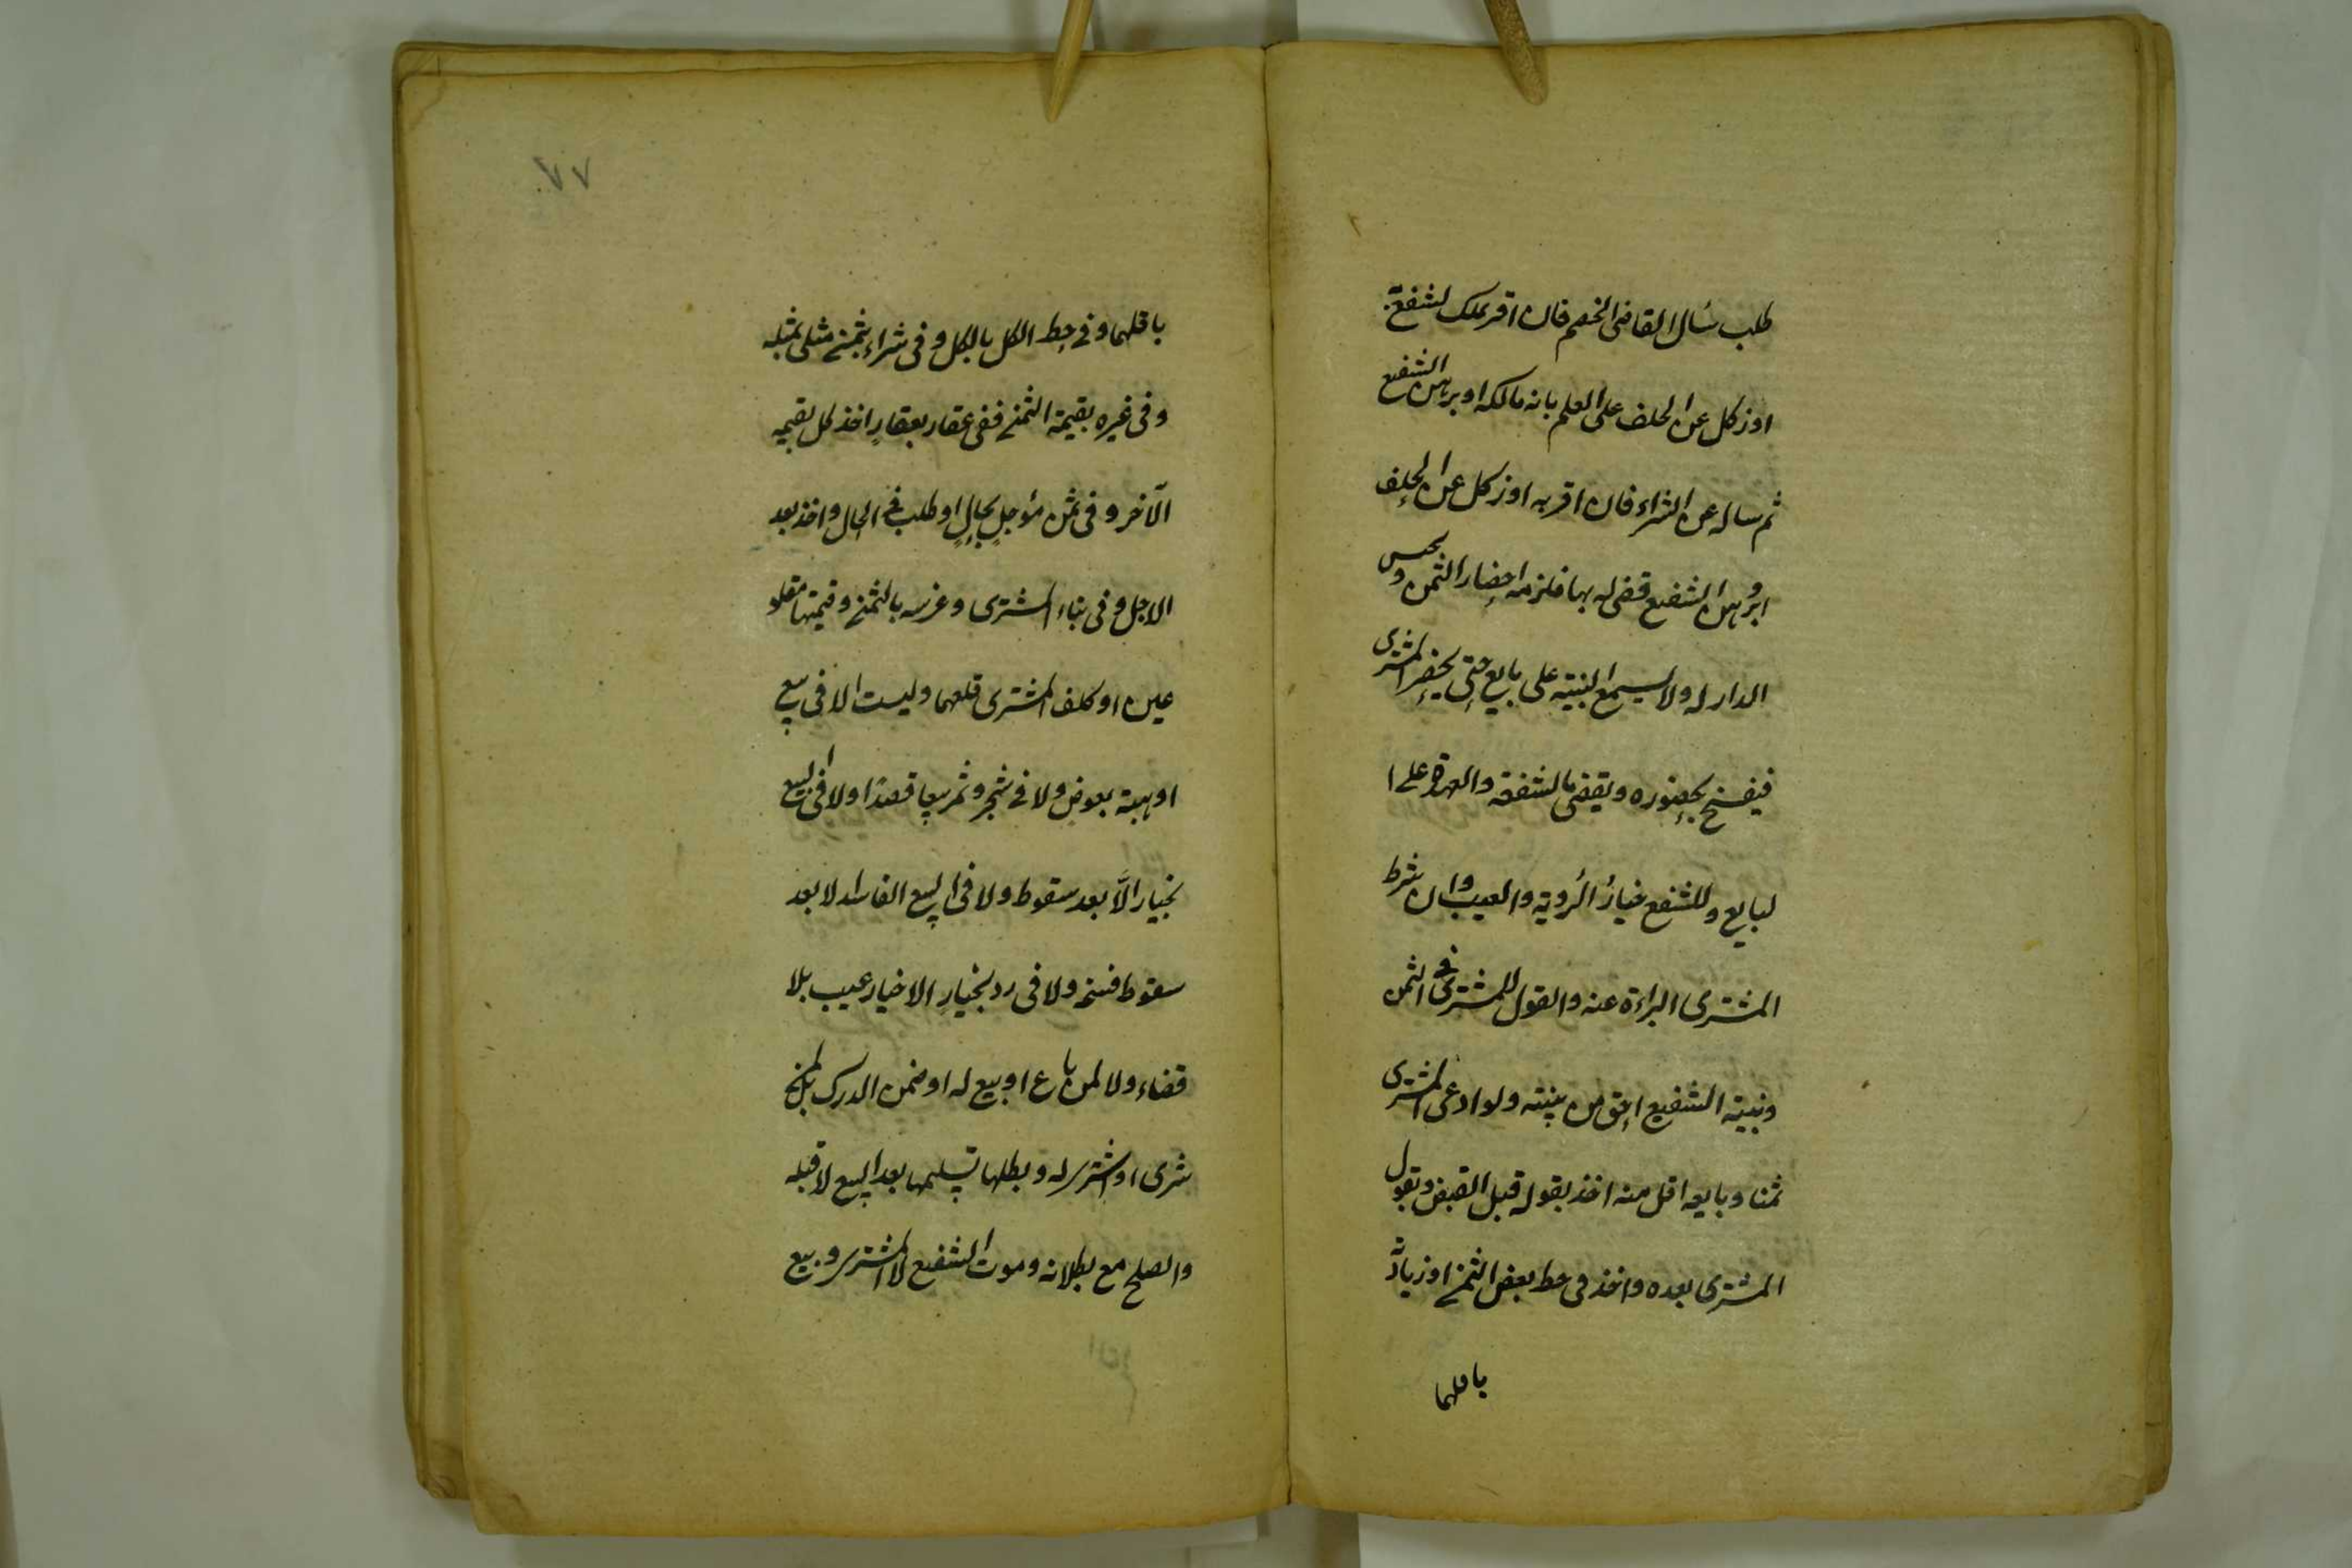 طلب سأل القاضى الخصم فان اقر بملك لشفع به
او نكل عن الحلف على العلم بانه مالكه او برهن الشفيع
ثم ساله عن الشراء فان اقر به او نكل عن الحلف
او برهن الشفيع قضى له بها فلزمه احضار الثمن وحبس
الدار له ولا يسمع البينة على بايع حتى يحضر المشترى
فيفسخ بحضوره ويقضى بالشفعة والعهدة على ا
لبايع وللشفيع خيارُ الرُوية والعيب وان شرط
المشترى البراءة عنه والقول للمشترى فى الثمن
وبينة الشفيع احق من بينته ولو ادعى المشترى
ثمنا وبايعه اقل منه اخذ بقوله قبل القبض وبقول
المشترى بعده واخذ فى حط بعض الثمن او زيادة
باقلهما
٧٧
باقلهما وفى حط الكل بالكل وفى شراء بثمن مثلى بمثله
وفى غيره بقيمة الثمن ففى عقار بعقارٍ اخذ كل بقيمة
الآخر وفى ثمن مؤجلٍ بحالٍ او طلب فى الحال واخذ بعد
الاجل وفى بناء المشترى وغرسه بالثمن وقيمتها مقلو
عين او كلف المشترى قلعهما وليست الا فى بيع
او هبة بعوض ولا فى شجر وثمر بيعا قصدًا ولا فى البيع
بخيار الاَّ بعد سقوط ولا فى البيع الفاسد الا بعد
سقوط فسخه ولا فى رد بخيارٍ الا خيار عيب بلا
قضاء ولا لمن باع او بيع له او ضمن الدرك بل لمن
شرى او اشترى له وبطلها تسليمها بعد البيع لا قبله
والصلح مع بطلانه وموت الشفيع لا المشترى وبيع